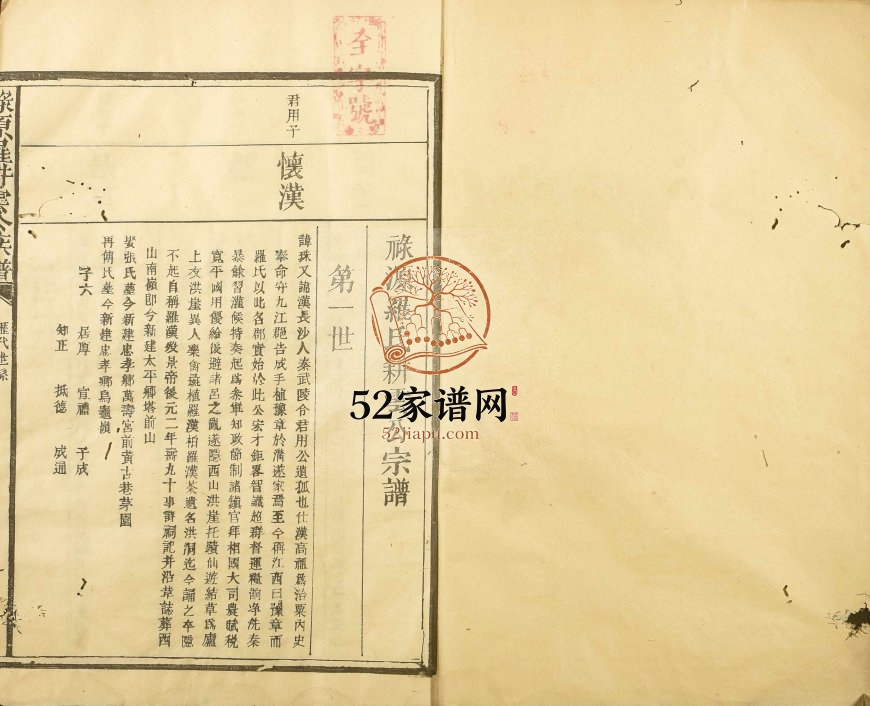 全字號
祿源羅氏新雲公宗譜
第一世
君用子
懷漢
諱珠又諱漢長沙人秦武陵令君用公遺孤也仕漢高祖為治粟內史
奉命守九江郡告成手植豫章於溝遂家焉至今稱江西曰豫章而
羅氏以此名郡實始於此公宏才鉅畧智識超群督運糧餉爭洗秦
暴餘習瀧候特奏起為泰軍知政節制諸鎮官拜相國大司農賦税
寬平國用優給後避諸呂之亂遂隱西山洪崖托蹟仙遊結草為廬
上友洪崖異人樂會最植羅漢栢羅漢茶遺名洪洞迄今誦之卒隱
不起自稱羅漢歿景帝後元二年壽九十事詳祠記并沿革誌葬西
山南嶺即今新建太平鄉塔前山
娶張氏墓今新建忠孝鄉萬壽宮前黃古巷茅園
再傅氏墓今新建忠孝鄉烏龜嶺
子六
居厚 宜禮 子成
知正 抵德 成通
歷代世系
52家谱网
52jiapu.com